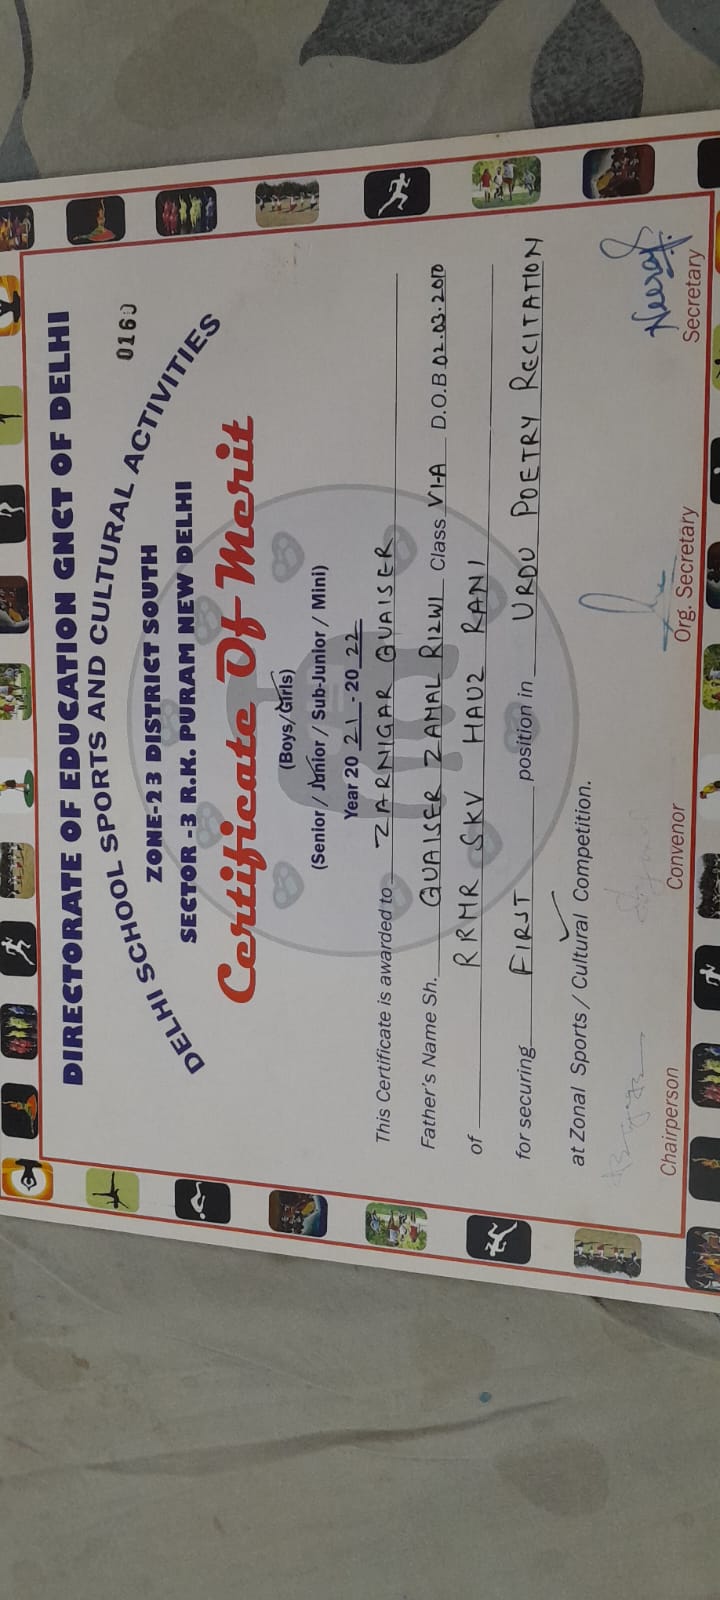 DIRECTORATE OF EDUCATION GNCT OF DELHI
0160
DELHI SCHOOL SPORTS AND CULTURAL ACTIVITIES
ZONE-23 DISTRICT SOUTH
SECTOR -3 R.K. PURAM NEW DELHI
Certificate Of Merit
(Boys/Girls)
(Senior / Junior / Sub-Junior / Mini)
Year 20 21 - 20 22
This Certificate is awarded to ZARNIGAR QUAISER
Father's Name Sh. QUAISER ZAMAL RIZWI Class VI-A D.O.B 02.03.2010
of RRMR SKV HAUZ RANI
for securing FIRST position in URDU POETRY RECITATION
at Zonal Sports / Cultural Competition.
Neeraj
Chairperson Convenor Org. Secretary Secretary